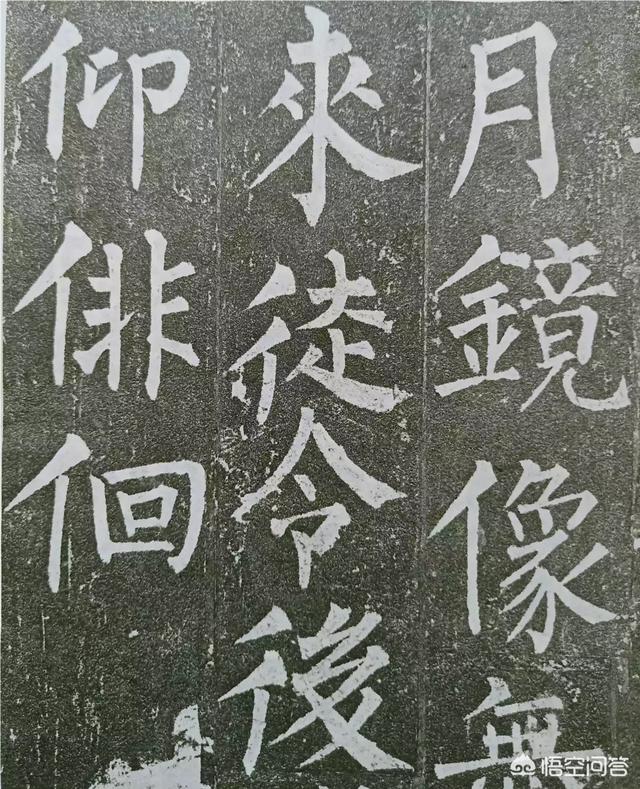 月鏡像無
來徒令後
仰俳佪
悟空问答